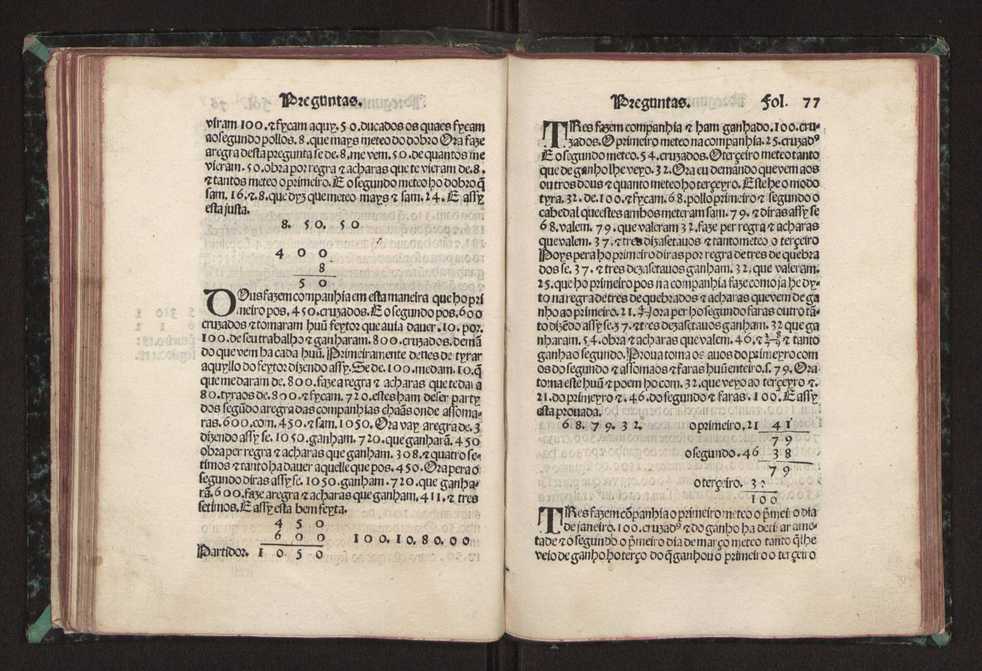 Preguntas.
viram 100. ⁊ fycam aquy. 50. ducados os quaes fycam
ao segundo pollos. 8. que mays meteo do dobro Ora faze
a regra desta pregunta se de. 8. me vem. 50. de quantos me
vieram. 50. obra por regra ⁊ acharas que te vieram de. 8.
⁊ tantos meteo o primeiro. E o segundo meteo ho dobro q̃
sam. 16. ⁊. 8. que dyz que meteo mays ⁊ sam. 24. E assy
esta justa.
8. 50. 50
4 0 0
8
5 0
DOus fazem companhia em esta maneira que ho pri
meiro pos. 450. cruzados. E o segundo pos. 600
cruzados ⁊ tomaram huũ feytor que auia dauer. 10. por.
100. de seu trabalho ⁊ ganharam. 800. cruzados. demã
do que vem ha cada huũ. Primeiramente deues de tyrar
aquyllo do feytor dizendo assy. Se de. 100. me dam. 10. q̃
que me daram de. 800. faze a regra ⁊ acharas que te dara
80. tyra os de. 800. ⁊ fycam. 720. estes ham de ser party
dos segũdo a regra das companhias chaãs onde assoma-
ras. 600. com. 450. ⁊ sam. 1050. Ora vay a regra de. 3
dizendo assy se. 1050. ganham. 720. que ganharã. 450
obra per regra ⁊ acharas que ganham. 308. ⁊ quatro se-
timos ⁊ tanto ha dauer aquelle que pos. 450. Ora pera o
segundo diras assy se. 1050. ganham. 720. que ganha-
rã. 600. faze a regra ⁊ acharas que ganham. 411. ⁊ tres
setimos. E assy esta bem feyta.
4 5 0
6 0 0 100. 10. 80. 00
Partidor. 1 0 5 0
Preguntas. Fol. 77
TRes fazem companhia ⁊ ham ganhado. 100. cru-
zados. O primeiro meteo na companhia. 25. cruzad⁹
E o segundo meteo. 54. cruzados. O terçeiro meteo tanto
que de ganho lhe veyo. 32. Ora eu demando que vem aos
outros dous ⁊ quanto meteo ho terçeyro. Este he o modo
tyra. 32. de. 100. ⁊ fycam. 68. pollo primeiro ⁊ segundo o
cabedal que estes ambos meteram sam. 79. ⁊ diras assy se
68. valem. 79. que valeram 32. faze per regra ⁊ acharas
que valem. 37. ⁊ tres dizasetauos ⁊ tanto meteo o terçeiro
Poys pera ho primeiro diras por regra de tres de quebra
dos se. 37. ⁊ tres dezasetauos ganham. 32. que valeram.
25. que ho primeiro pos na companhia faze como ja he dy-
to na regra de tres de quebrados ⁊ acharas que vem de ga
nho ao primeiro. 21. 41/79 ora per ho segundo faras outro tã-
to dizẽdo assy se. 37. ⁊ tres dezasetauos ganham. 32 que ga
nharam. 54. obra ⁊ acharas que valem. 46. ⁊ 38/79 ⁊ tanto
ganha o segundo. Proua toma os auos do primeyro com
os do segundo ⁊ assoma os ⁊ faras huũ enteiro. s. 79. Ora
torna este huũ ⁊ poem ho com. 32. que veyo ao terçeyro ⁊.
21. do primeyro ⁊. 46. do segundo ⁊ faras. 100. E assy
esta prouada.
68. 79. 32. o primeiro. 21 41
79
o segundo. 46 38
79
o terçeiro. 32
100
TRes fazem cõpanhia o primeiro meteo o p̃meiro dia
de janeiro. 100. cruzad⁹ ⁊ do ganho ha de tirar ame-
tade ⁊ o segundo o p̃meiro dia de março meteo tanto q̃ lhe
veio de ganho ho terço do q̃ ganhou o primeiro o terçeiro